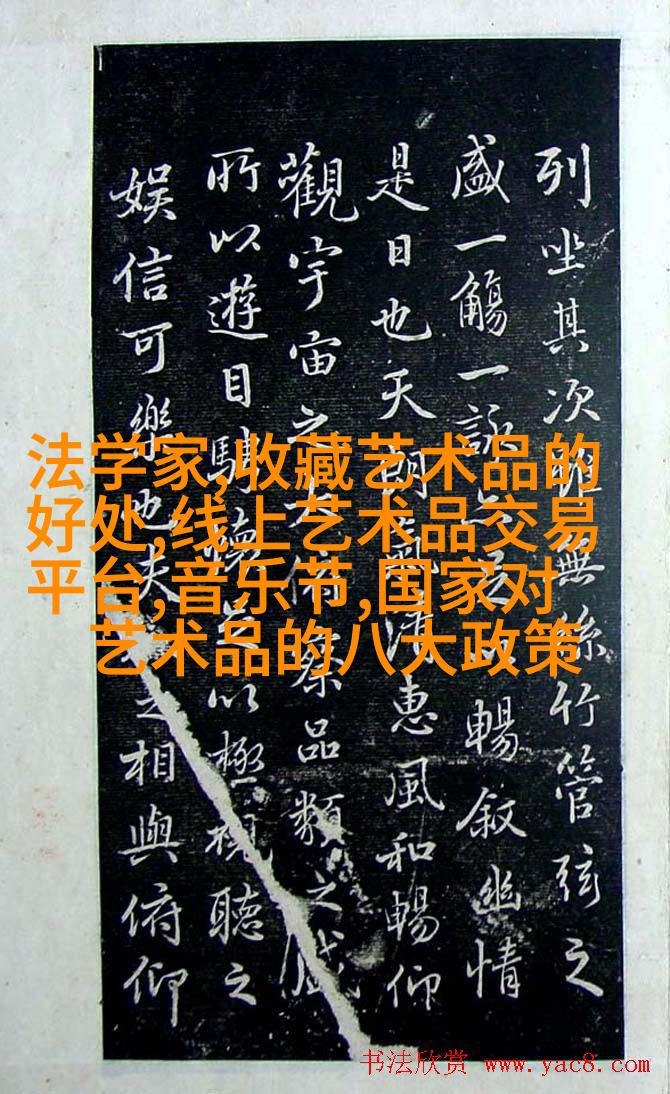 列坐其次雖無絲竹管弦之
盛一觴一詠亦足以暢叙幽情
是日也天朗氣清惠風和暢仰
觀宇宙之大俯察品類之盛
所以遊目騁懷足以極視聽之
娱信可樂也夫之相與俯仰
法学家,收藏艺术品的
好处,线上艺术品交易
平台,音乐节,国家对
艺术品的八大政策
书法欣赏 www.yac8.com